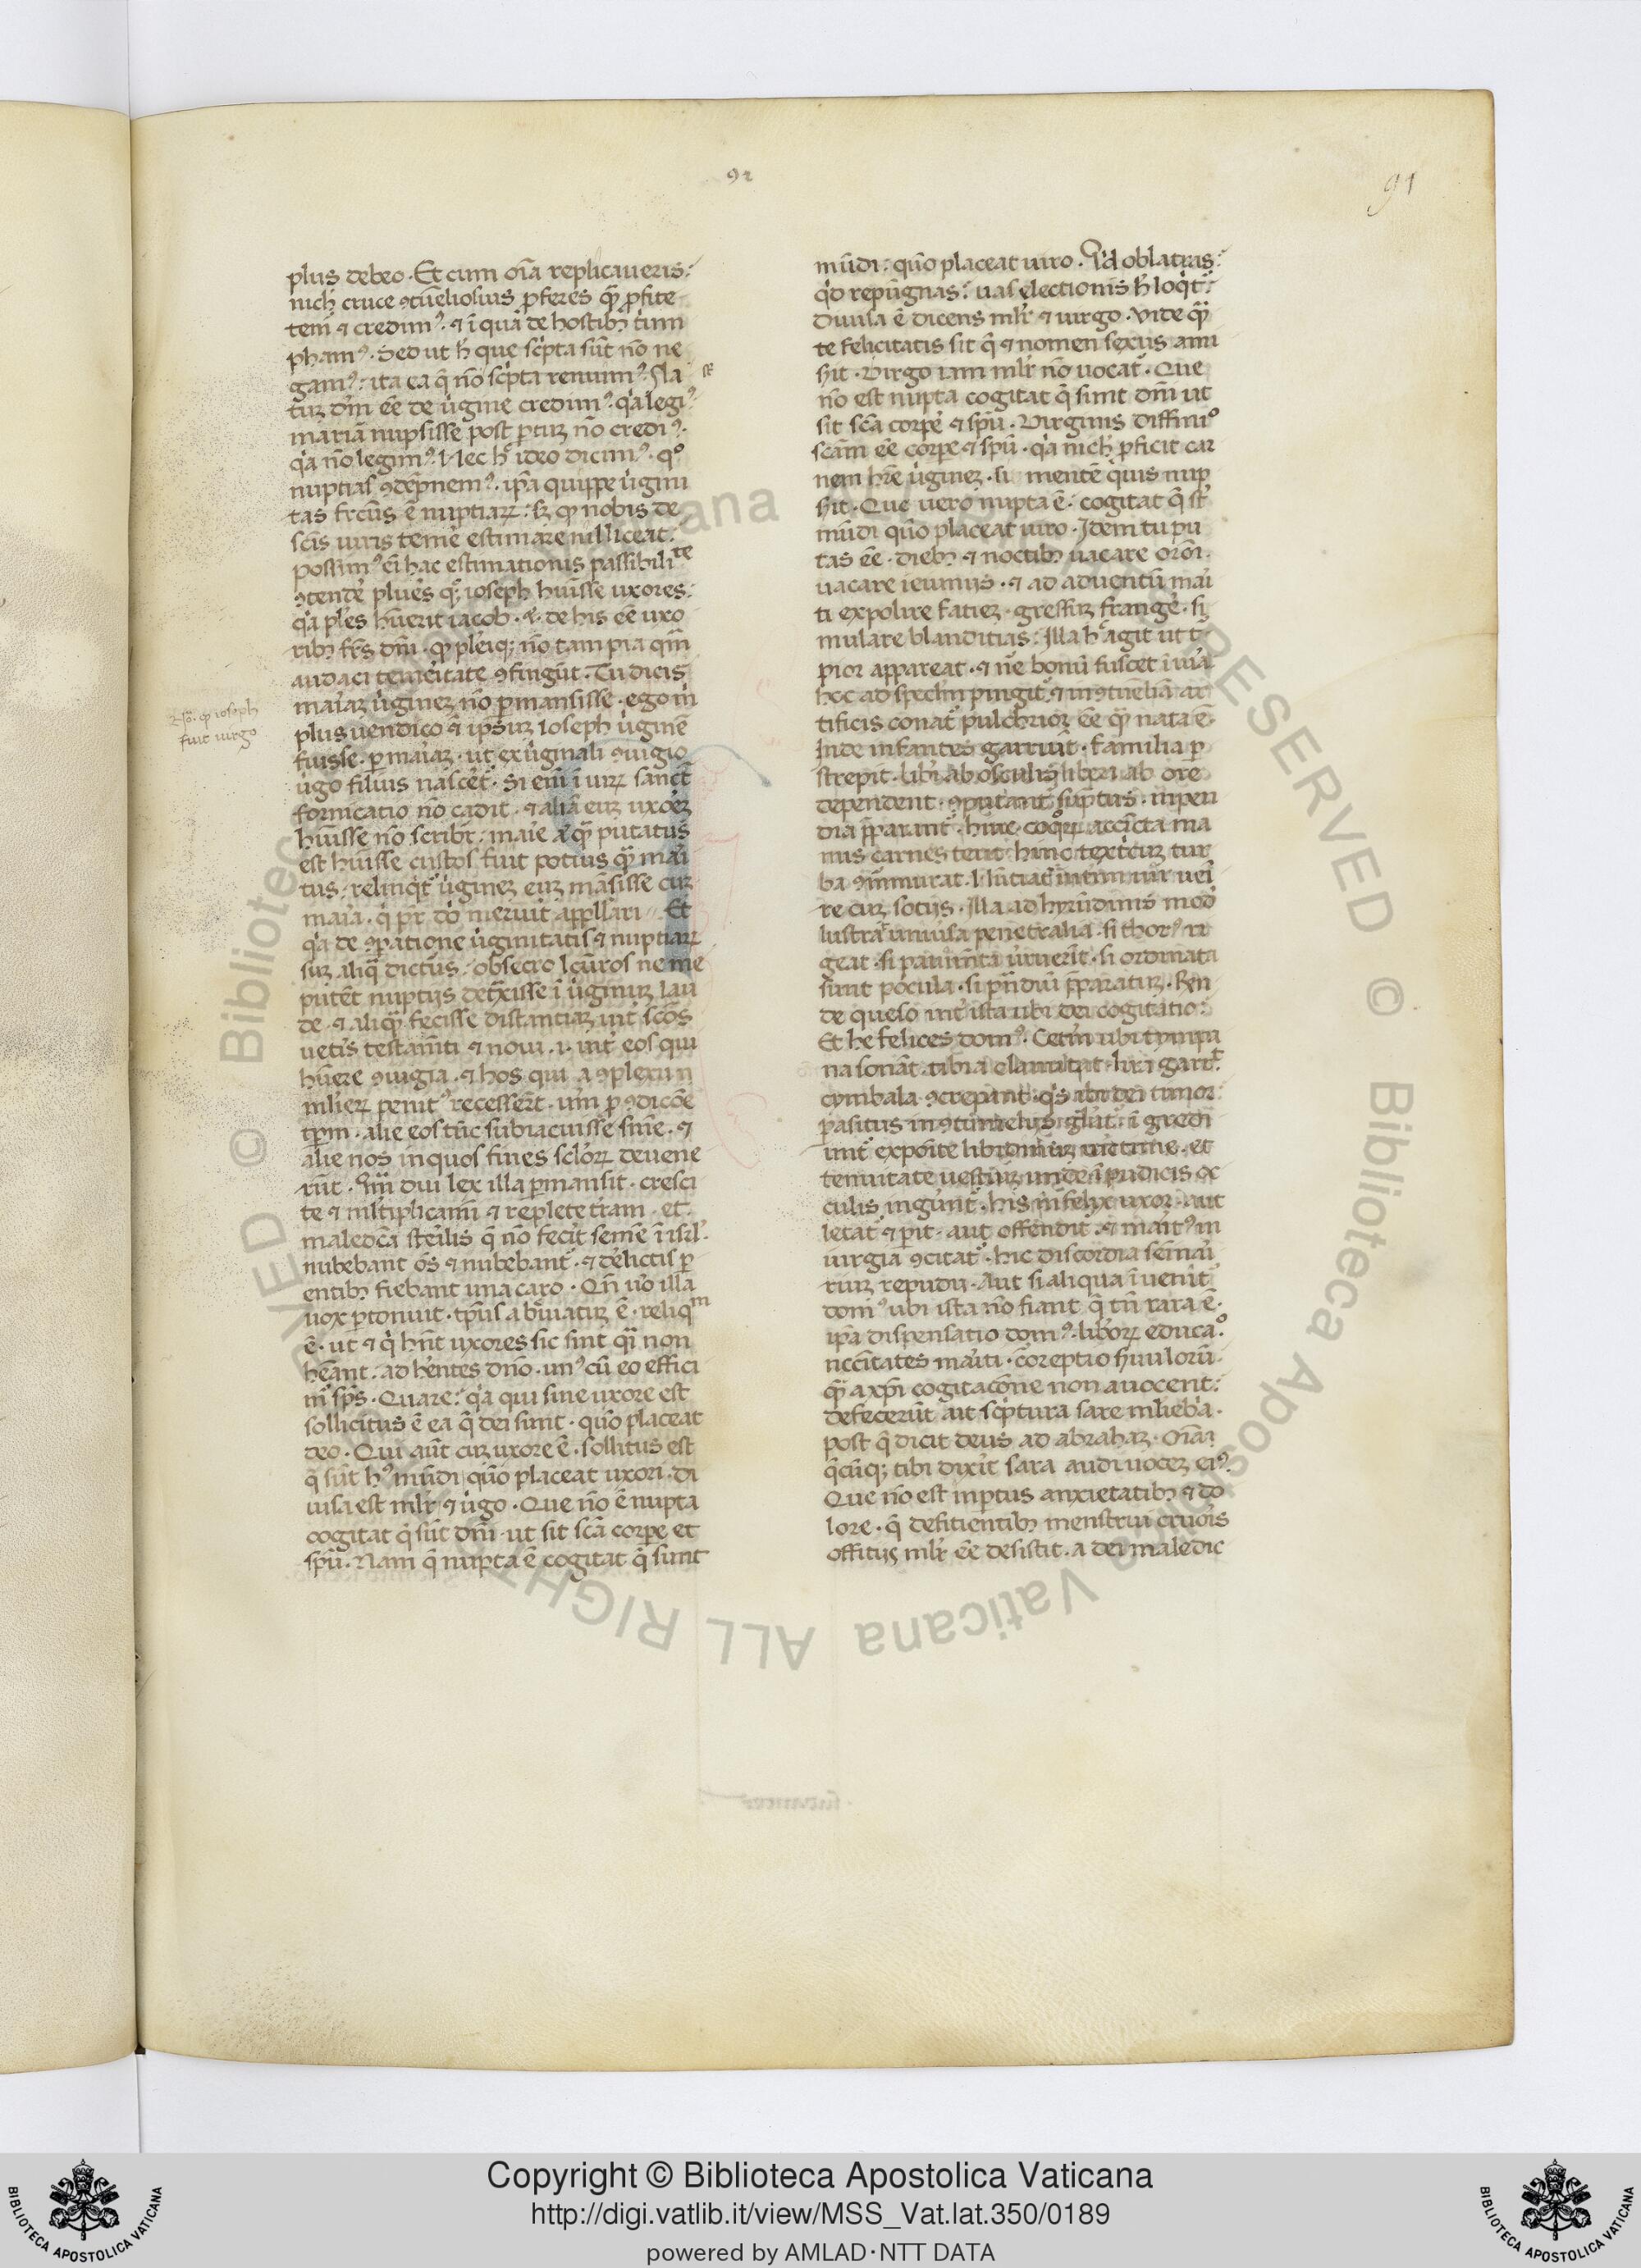 92
91
plus debeo. Et cum oīa replicaueris:
nich cruce ꝯtūeliosius ꝓferes qͣꝫ ꝓfite
tem̄ ⁊ credim⁹. ⁊ ī qua de hostibꝫ trium
pham⁹. Sed ut h̄ que sc̄pta sūt nō ne
gam⁹: ita ea q̄ nō sc̄pta renuim⁹. Na
tuꝫ dm̄ ēe de ůgine credim⁹. qͥa legi⁹
mariā nupsisse post ꝑtuꝫ nō credi⁹.
qͥa nō legim⁹. Nec hͦ ideo dicim⁹. qͦ
nuptias ꝯdēpnem⁹. ip̄a quippe ůgini
tas frcūs ē nuptiaꝝ: sꝫ ꝙ nobis de
sc̄is uiris temē estimare nil liceat.
possim⁹ em̄ hac estimationis passibilite
ꝯtende plures qͦꝫ ioseph hūisse uxores:
qͥa ples hūerit iacob. ⁊ de his ēe uxo
ribꝫ frēs dn̄i. ꝙ pleiqꝫ nō tam pia qm̄
audaci temeitate ꝯfingūt. Tu dicis
maiaꝫ ůgineꝫ nō ꝑmansisse. ego m̄
plus uendico ē ip̄suꝫ Ioseph ůginē
fuisse. ꝑ maiaꝫ. ut ex ůginali ꝯiugio
ůgo filius nasceͭ. Si em̄ ī uiꝝ sanct̄
fornicatio nō cadit. ⁊ aliā euꝫ uxoeꝫ
hūisse nō scribit: maie a᷑ qͣꝫ putatus
est hūisse custos fuit potius qͣꝫ mai
tus: relinqͥt᷑ ůgineꝫ euꝫ māsisse cuꝫ
maia. qͥ pr̄ dn̄i meruit app̄llari. Et
qͥa de ꝯꝑatione ůginitatis ⁊ nuptiaꝝ
suꝫ aliqͣ dictūs: obsecro lcūros ne me
putēt nuptijs det̄xisse ī ůginuꝫ lau
de. ⁊ aliqͣꝫ fecisse distantiaꝫ int̄ sc̄os
uetis testam̄ti ⁊ noui. i. int̄ eos qui
hūere ꝯiugia. ⁊ hos qui a ꝯplexu n
mlieꝝ penit⁹ recesser̄t. uim ꝑ ꝯdicōe
tpm̄. alie eos tūc subiacuisse snīe. ⁊
alie nos in quos fines scloꝝ deuene
rūt. Qm̄ diu lex illa ꝑmansit. cresci
te ⁊ mltiplicami ⁊ replete tram. et.
maledcā steilis q̄ nō fecit semē ī isrl.
nubebant oēs ⁊ nubebant᷑. ⁊ delictis ꝑ
entibꝫ fiebant una caro. Qn̄ uo illa
uox ꝑtonuit. tp̄us abbuiatuꝫ ē. reliqm
ē. ut ⁊ qͥ hn̄t uxores sic sint qͣi non
heānt: adhentes dn̄o. un⁹ cū eo effici
m᷑ sp̄s. Quare: qͥa qui sine uxore est
sollicitus ē ea q̄ dei sunt. quō placeat
deo. Qui aūt cuꝫ uxore ē. sollitus est
q̄ sūt h⁹ mūdi quō placeat uxori. di
uisa est mlr̄ ⁊ ůgo. Que nō ē nupta
cogitat q̄ sūt dn̄i. ut sit sc̄a corpe et
sp̄u. Nam q̄ nupta ē cogitat q̄ sunt
ioseph
fuit uirgo
mūdi: quō placeat uiro. Qͥd oblatras:
qͥd repugnas: uas electionis h̄ loqͥt᷑:
Diuisa ē dicens mlr̄ ⁊ uirgo. Vide qͣ
te felicitatis sit q̄ ⁊ nomen sexus ami
sit. Virgo iam mlr̄ nō uocat᷑. Que
nō est nupta cogitat q̄ sunt dn̄i ut
sit sc̄a corpe ⁊ sp̄u. Virginis diffinio
scām ēe corpe ⁊ sp̄u. qͥa nich ꝓficit car
nem hr̄e ůgineꝫ. si mentē qͥuis nup
sit. Que uero nupta ē. cogitat q̄ st̄
mūdi quō placeat uiro. Idem tu pu
tas ēe. diebꝫ ⁊ noctibꝫ uacare oroī.
uacare ieiunijs. ⁊ ad aduentū mai
ti expolire fatieꝫ. gressuꝫ frange. si
mulare blanditias: Illa hͦ agit ut t
pior appareat. ⁊ ne bonū fuscet ī uia
hoc ad speclm pingit᷑. ⁊ in ꝯtūeliā ar
tificis conat᷑ pulchrior ēe qͣꝫ nata ē.
Inde infantes garriūt. familia ꝑ
strepit. libi ab osculis liberi ab ore
dependent. ꝯputant᷑ sūptus. inpen
dia p̄parant᷑. hinc coqͦꝝ accīcta ma
nus carnes terit. hinc textcuꝫ tur
ba ꝯmurat. Nūtiat᷑ intim uir uei
re cuꝫ sotijs. Illa ad hyrūdinis mod
lustrat uniuisa penetralia. si thor⁹ ri
geat. si pauim̄ta ůruerīt. si ordinata
sunt pocula. si prādiū p̄paratuꝫ. Ren
de queso int̄ ista ubi dei cogitatio:
Et he felices dom⁹. Cet̄m ubi tympa
na sonāt. tibia clamitat. lira garrit.
cymbala ꝯcrepant. qͥs ibi dei timor:
ꝑasitus in ꝯtumelijs glīat᷑. ī gredi
unt᷑ exposite libidinuꝫ uictime. et
tenuitate uestiuꝫ nude īpudicis oc
culis ingerūt᷑. his in felix uxor. aut
letat᷑ ⁊ ꝑit. aut offendit. ⁊ mait⁹ in
iurgia ꝯcitat᷑. hic discordia semai
riuꝫ repudij. Aut si aliqua īuenit᷑
dom⁹ ubi ista nō fiant q̄ tn̄ rara ē.
ip̄a dispensatio dom⁹. liboꝝ educao.
nccītates maiti. coreptio seruulorū.
qͣꝫ a xp̄i cogitacōne non auocent:
defecerūt ait sc̄ptura sare mliebia.
post q̄ dicit deus ad abrahaꝫ. Oīa
q̄cūqꝫ tibi dixit sara audi uoceꝫ ei⁹.
Que nō est in ꝑtus anxietatibꝫ ⁊ do
lore. q̄ defitientibꝫ menstrui cruois
offitijs mlr̄ ēe desistit. a dei maledic
© Biblioteca Apostolica Vaticana ALL RIGHTS RESERVED © Biblioteca Apostolica Vaticana ALL RIGHTS RESERVED
Copyright © Biblioteca Apostolica Vaticana
http://digi.vatlib.it/view/MSS_Vat.lat.350/0189
powered by AMLAD·NTT DATA
BIBLIOTECA APOSTOLICA VATICANA
BIBLIOTECA APOSTOLICA VATICANA